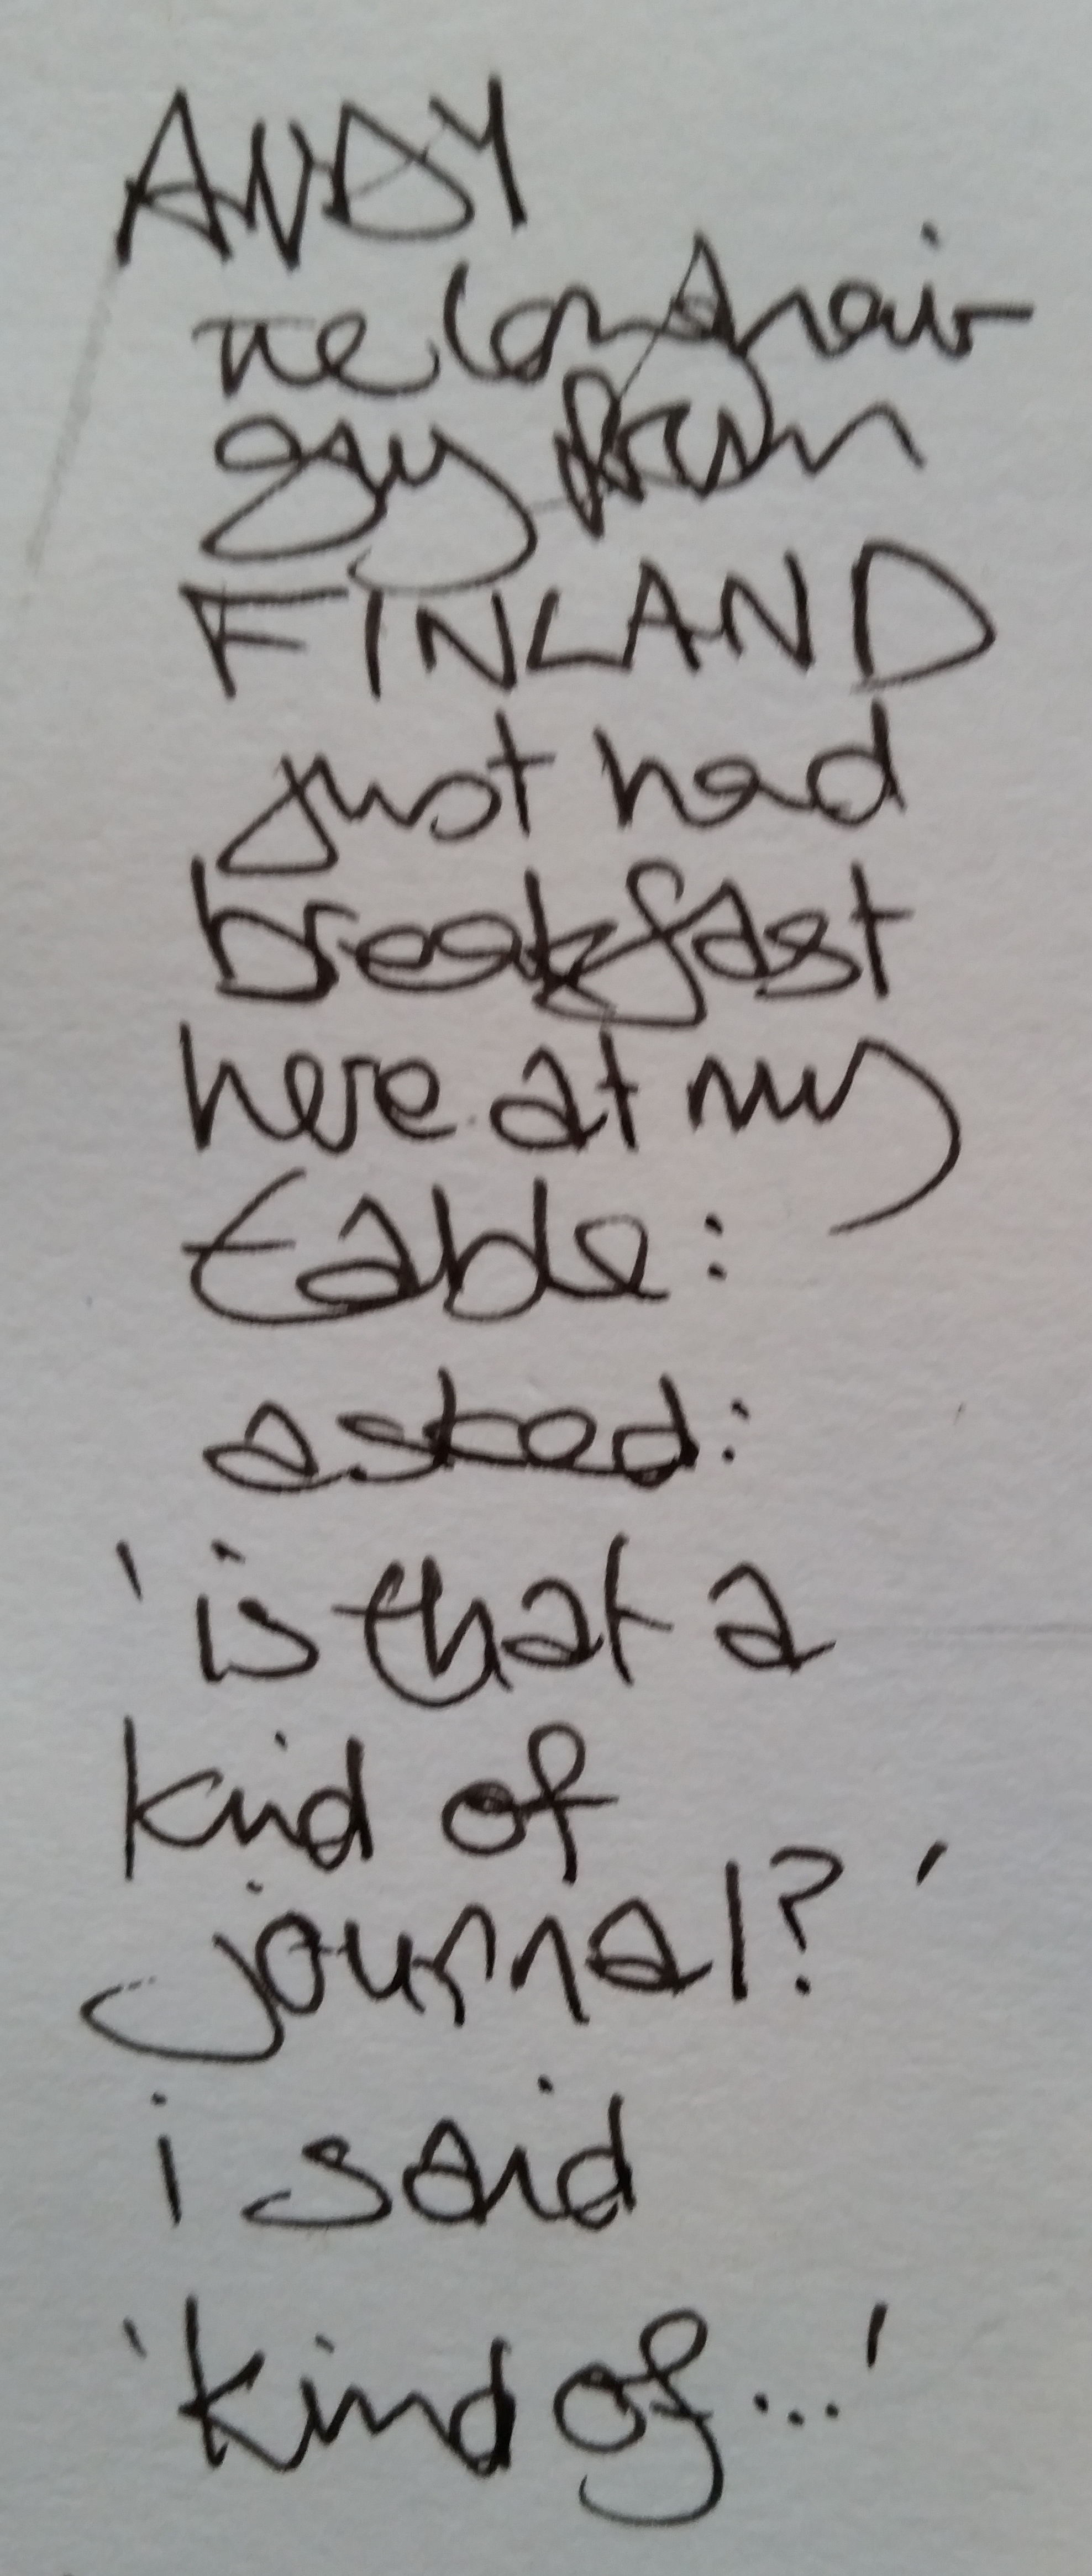 ANDY
the longhair
guy from
FINLAND
just had
breakfast
here at my
table:
asked:
'is that a
kind of
journal?'
i said
'kind of...'